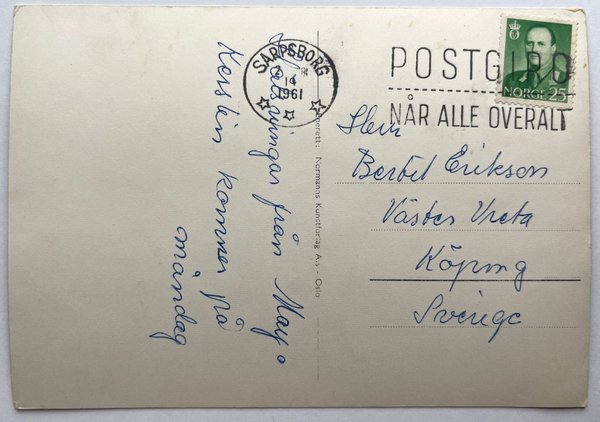 Hälsningar från May o
Kerstin kommer på
måndag
SARPSBORG
19
1961
POSTGIRO
NÅR ALLE OVERALT
NORGE 25
enerett: Normanns Kunstforlag A.s - Oslo
Herr
Bertel Erikson
Väster Vreta
Köping
Sverige